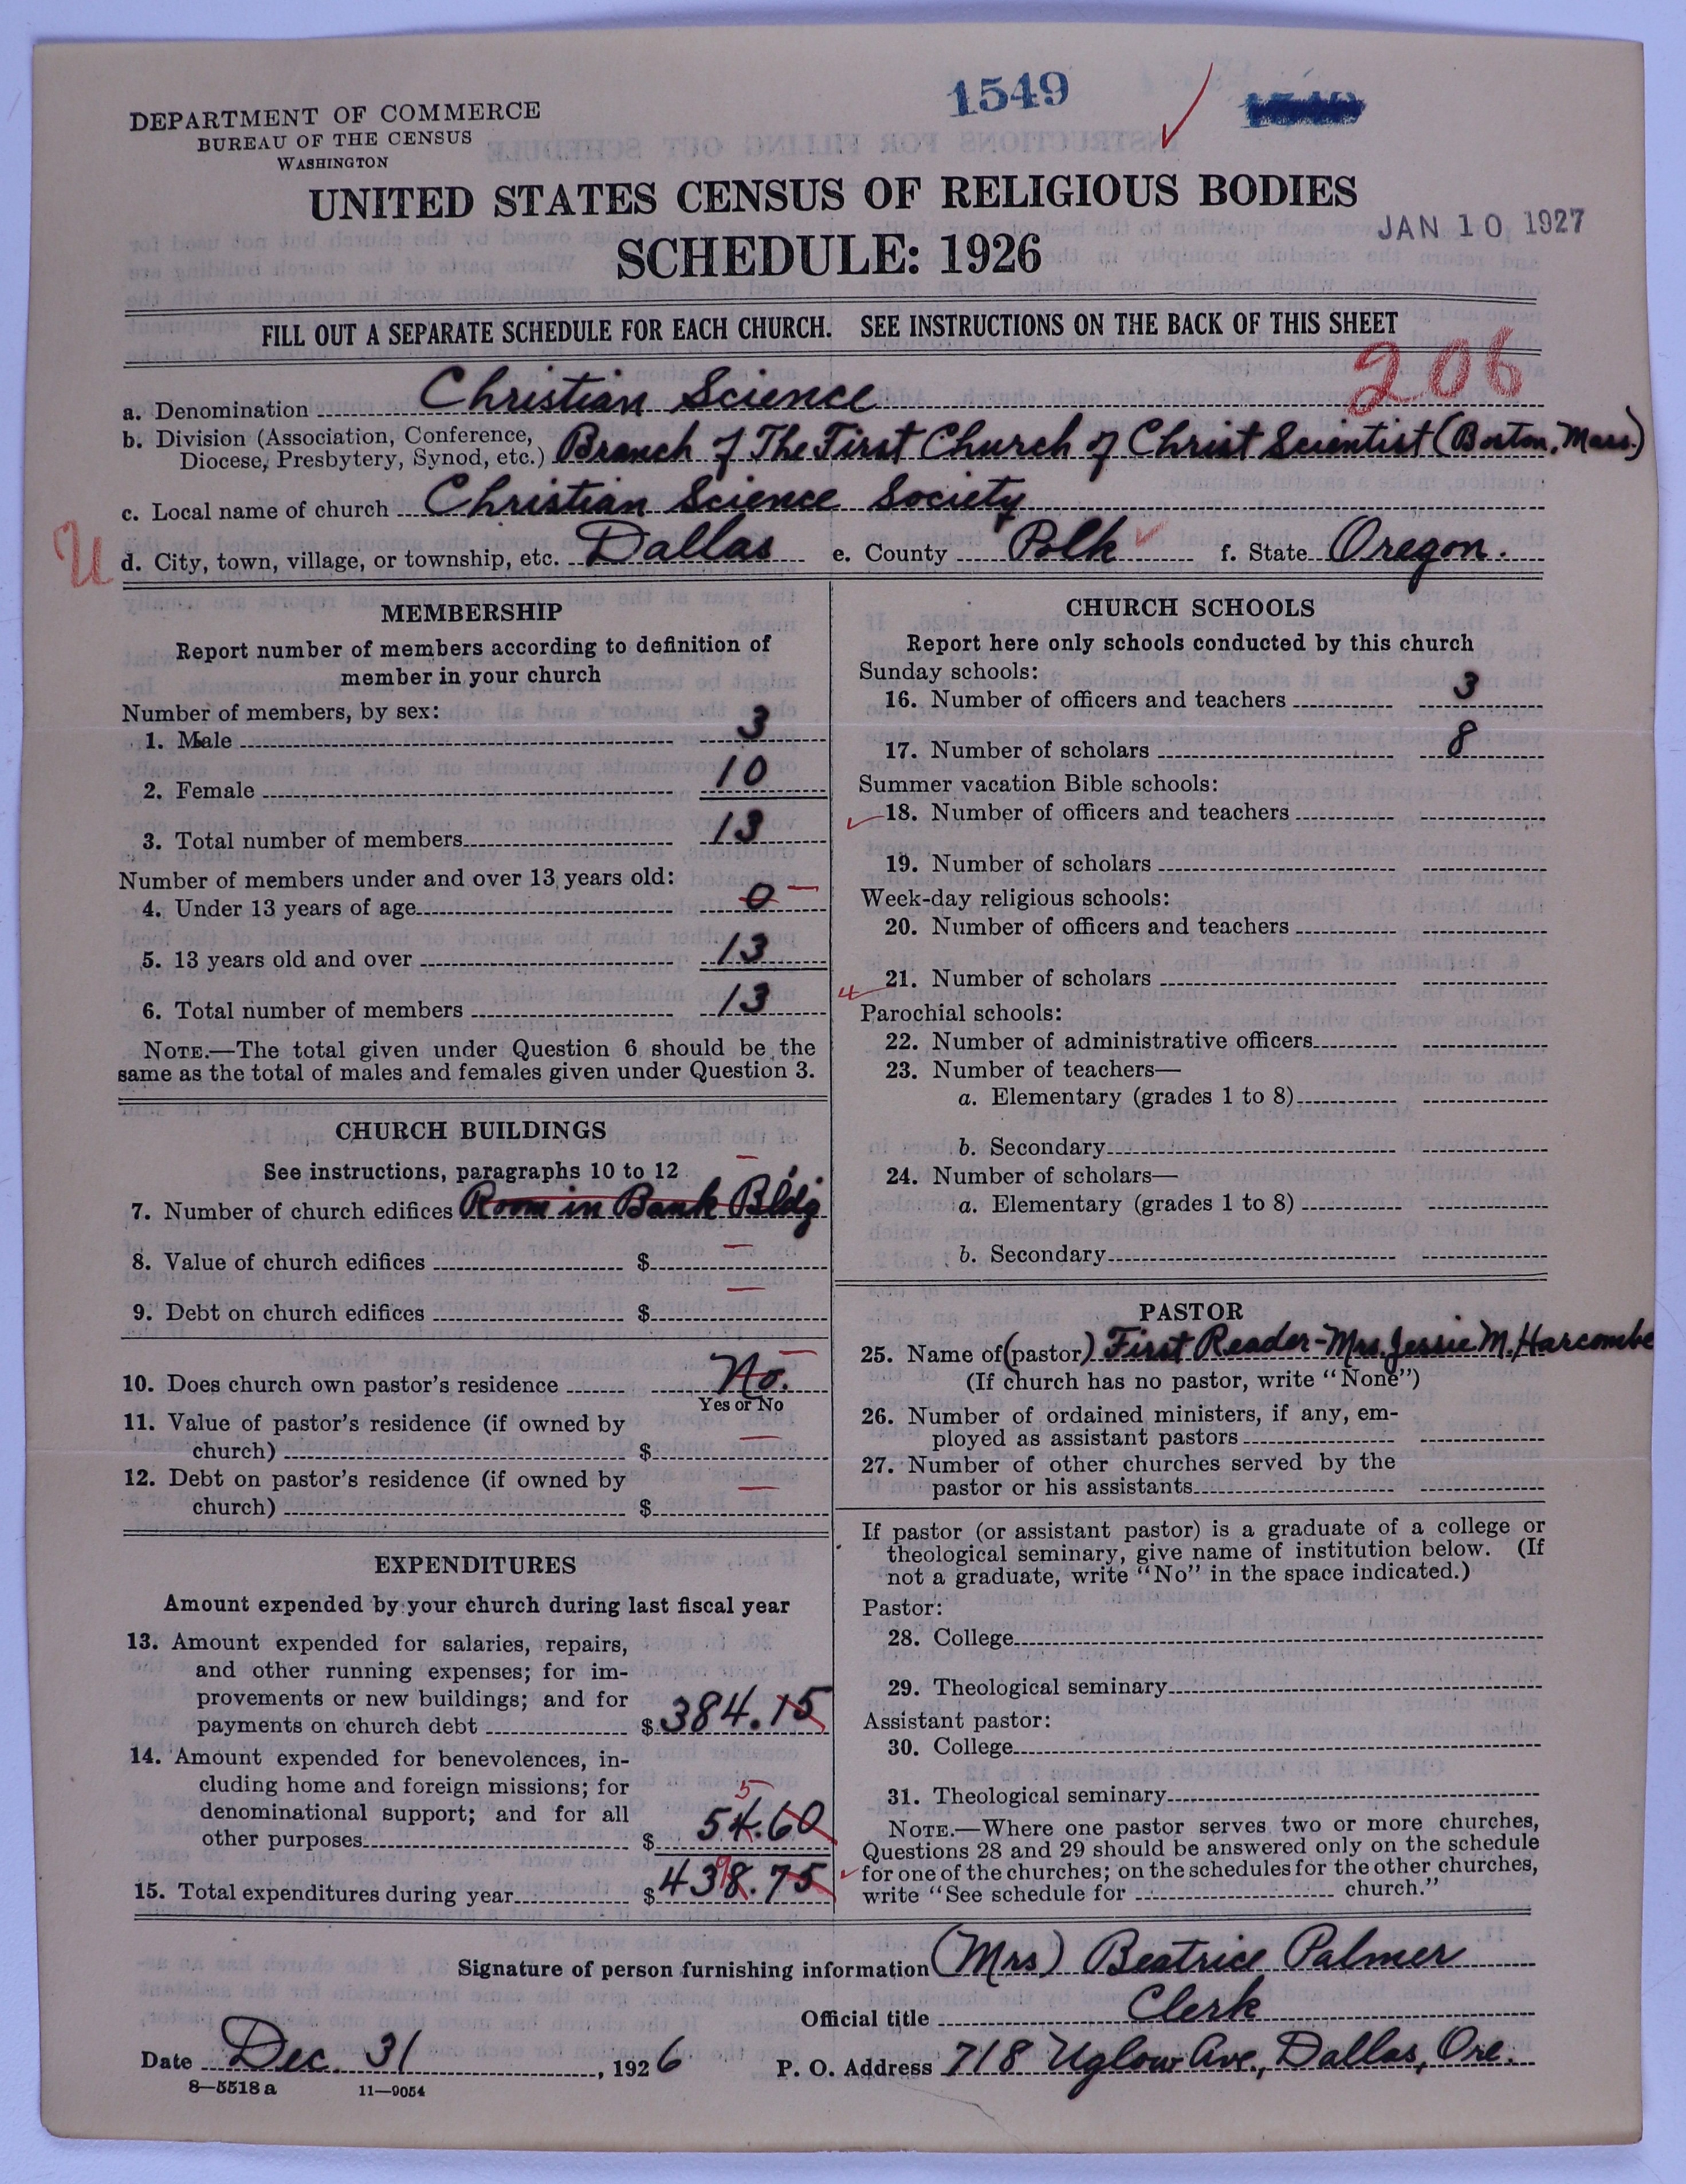 1549
DEPARTMENT OF COMMERCE
BUREAU OF THE CENSUS
WASHINGTON
UNITED STATES CENSUS OF RELIGIOUS BODIES
JAN 10 1927
SCHEDULE: 1926
FILL OUT A SEPARATE SCHEDULE FOR EACH CHURCH. SEE INSTRUCTIONS ON THE BACK OF THIS SHEET
206
a. Denomination Christian Science
b. Division (Association, Conference,
Diocese, Presbytery, Synod, etc.) Branch of The First Church of Christ Scientist (Boston, Mass.)
c. Local name of church Christian Science Society
U
d. City, town, village, or township, etc. Dallas e. County Polk f. State Oregon.
MEMBERSHIP
Report number of members according to definition of
member in your church
Number of members, by sex:
1. Male 3
2. Female 10
3. Total number of members 13
Number of members under and over 13 years old:
4. Under 13 years of age 0
5. 13 years old and over 13
6. Total number of members 13
NOTE.—The total given under Question 6 should be the
same as the total of males and females given under Question 3.
CHURCH BUILDINGS
See instructions, paragraphs 10 to 12
7. Number of church edifices Room in Bank Bldg
8. Value of church edifices $
9. Debt on church edifices $
10. Does church own pastor's residence No.
Yes or No
11. Value of pastor's residence (if owned by
church) $
12. Debt on pastor's residence (if owned by
church) $
EXPENDITURES
Amount expended by your church during last fiscal year
13. Amount expended for salaries, repairs,
and other running expenses; for im-
provements or new buildings; and for
payments on church debt $384.15
14. Amount expended for benevolences, in-
cluding home and foreign missions; for
denominational support; and for all
5
other purposes $54.60
9
15. Total expenditures during year $438.75
CHURCH SCHOOLS
Report here only schools conducted by this church
Sunday schools:
16. Number of officers and teachers 3
17. Number of scholars 8
Summer vacation Bible schools:
18. Number of officers and teachers
19. Number of scholars
Week-day religious schools:
20. Number of officers and teachers
21. Number of scholars
Parochial schools:
22. Number of administrative officers
23. Number of teachers—
a. Elementary (grades 1 to 8)
b. Secondary
24. Number of scholars—
a. Elementary (grades 1 to 8)
b. Secondary
PASTOR
25. Name of (pastor) First Reader-Mrs. Jessie M. Harcombe
(If church has no pastor, write "None")
26. Number of ordained ministers, if any, em-
ployed as assistant pastors
27. Number of other churches served by the
pastor or his assistants
If pastor (or assistant pastor) is a graduate of a college or
theological seminary, give name of institution below. (If
not a graduate, write "No" in the space indicated.)
Pastor:
28. College
29. Theological seminary
Assistant pastor:
30. College
31. Theological seminary
NOTE.—Where one pastor serves two or more churches,
Questions 28 and 29 should be answered only on the schedule
for one of the churches; on the schedules for the other churches,
write "See schedule for church."
Signature of person furnishing information (Mrs) Beatrice Palmer
Official title Clerk
Date Dec. 31, 1926 P. O. Address 718 Uglow Ave., Dallas, Ore.
8—5518 a 11—9054